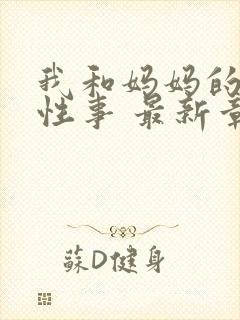 我和妈妈的
性事 最新章
蘇D健身